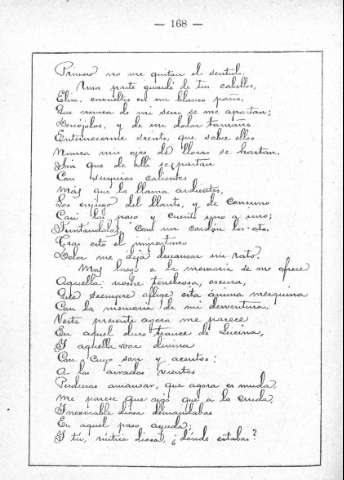 — 168 —
Primero no me quiten el sentido.
Una parte guardé de tus cabellos,
Elisa, envueltos en un blanco paño,
Que nunca de mi seno se me apartan;
Descójolos, y de un dolor tamaño
Enternecerme siento, que sobre ellos
Nunca mis ojos de llorar se hartan.
Sin que de allí se partan
Con suspiros calientes
Más que la llama ardientes,
Los enjugo del llanto, y de consuno
Casi los paso y cuento uno a uno;
Juntándolos, con un cordón los ato.
Tras esto el importuno
Dolor me deja descansar un rato.
Mas luego a la memoria se me ofrece
Aquella noche tenebrosa, oscura,
Que siempre aflige esta ánima mezquina
Con la memoria de mi desventura.
Verte presente agora me parece
En aquel duro trance de Lucina,
Y aquella voz divina
Con cuyo son y acentos:
A los airados vientos
Pudieras amansar, que agora es muda.
Me parece que oigo que a la cruda,
Inexorable diosa demandabas
En aquel paso ayuda;
Y tú, rústica diosa, ¿dónde estabas?